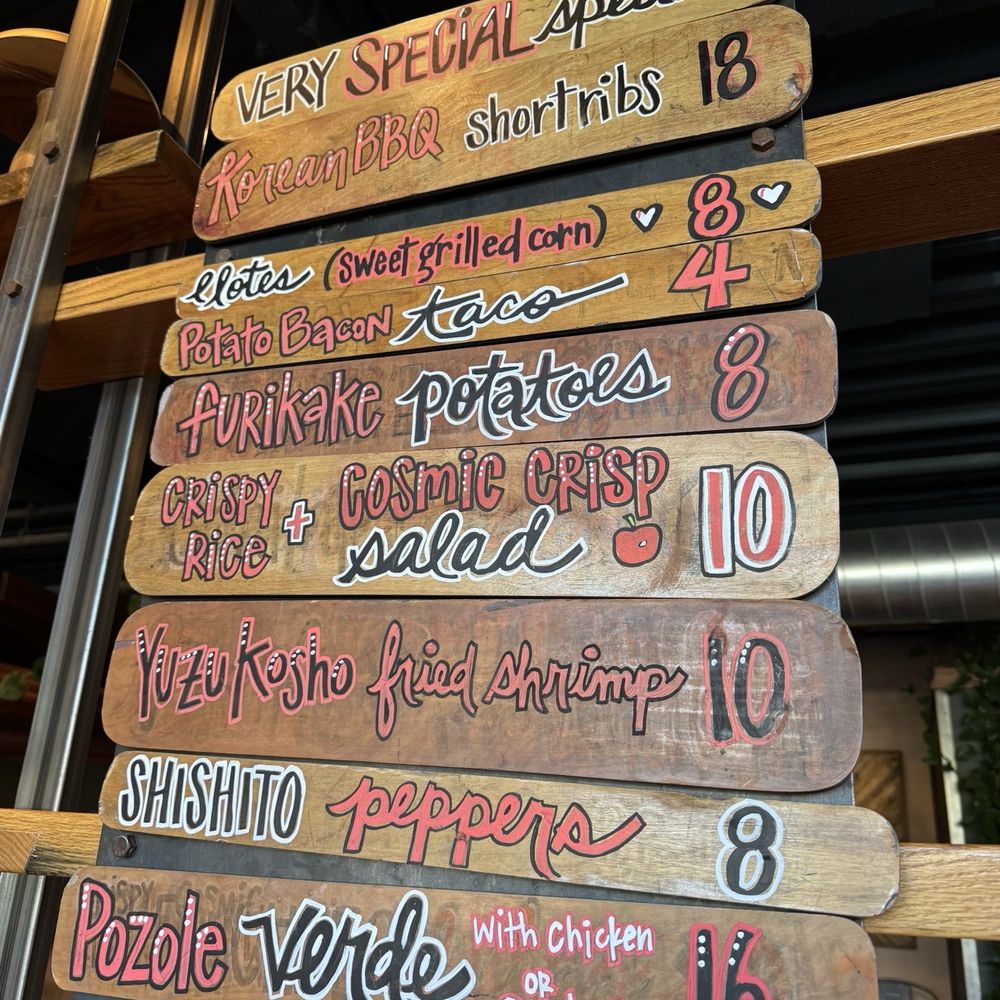 VERY SPECIAL
Korean BBQ shortribs 18
elotes (sweet grilled corn) 8
Potato Bacon taco 4
furikake potatoes 8
CRISPY RICE + COSMIC CRISP salad 10
Yuzu Kosho fried shrimp 10
SHISHITO peppers 8
Pozole verde with chicken 16
OR